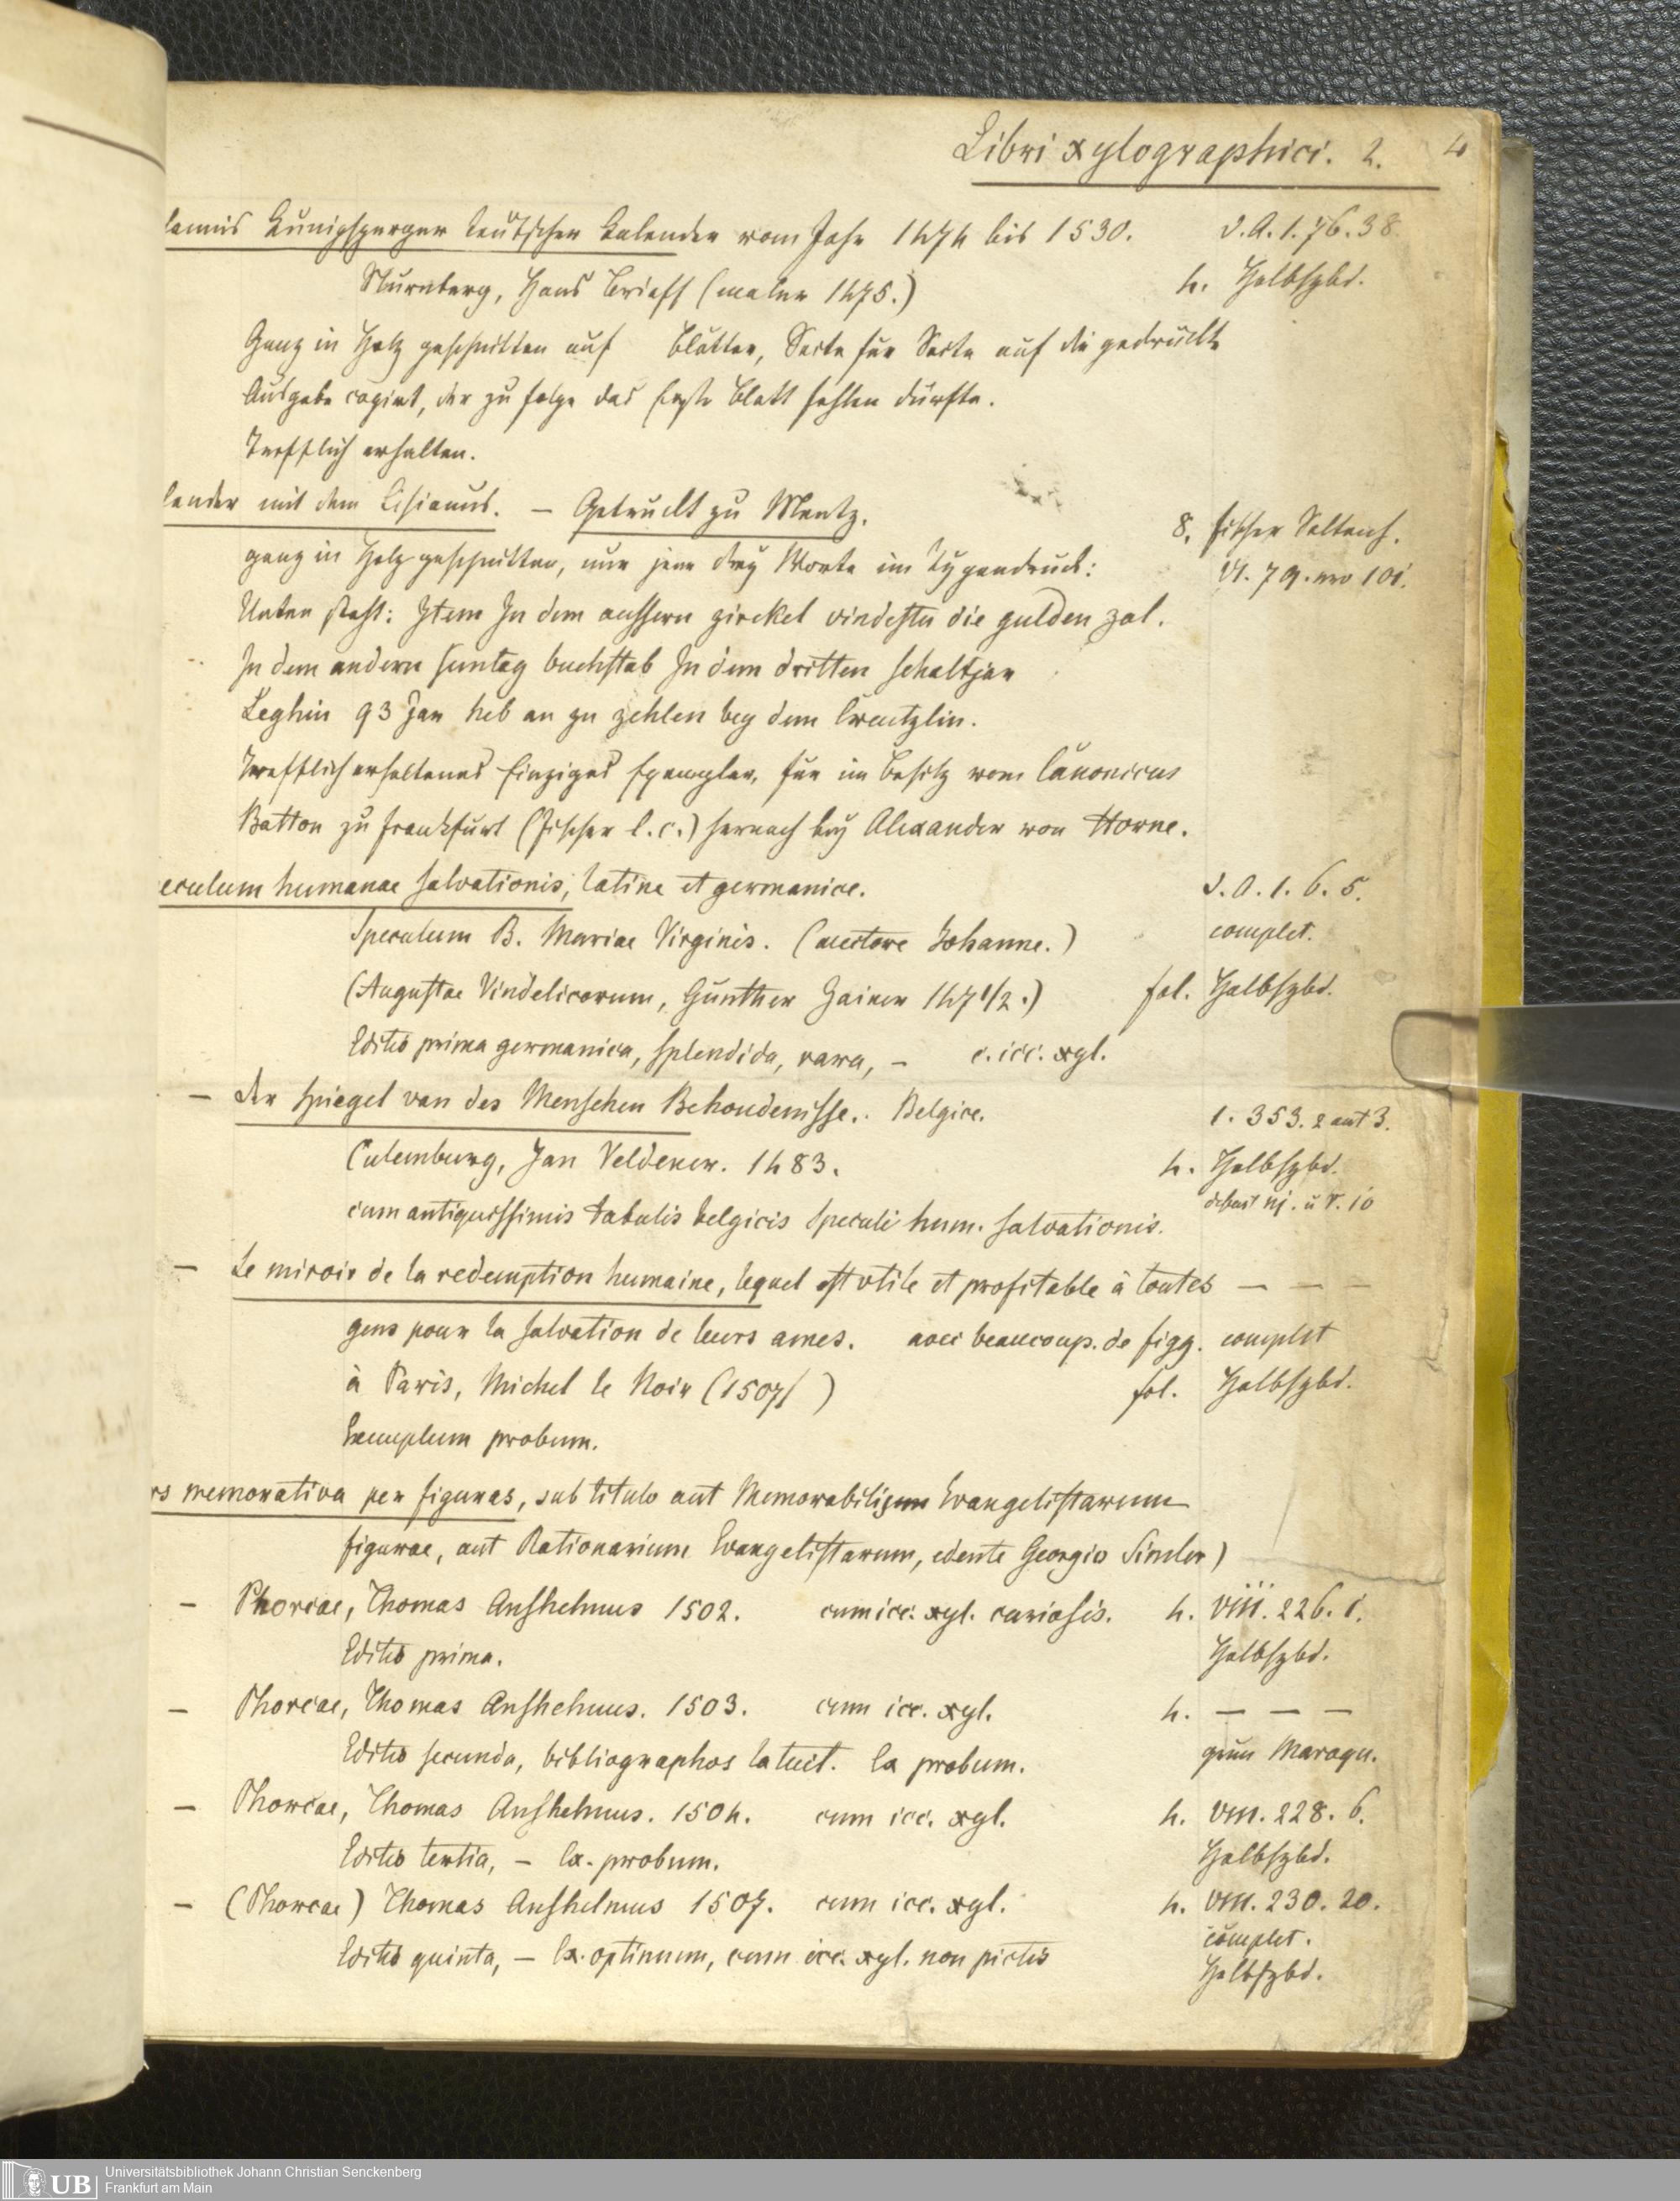 Libri xylographici. 2. 4
Kunigsperger teütscher Kalender vom Jahr 1474 bis 1530. V.A.1.76.38.
Nürnberg, Hans Brieff (maler 1475.) 4. Halbfzbd.
Ganz in Holz geschnitten auf Blätter, Seite für Seite auf die gedruckte
Ausgabe copirt, der zu folge das Erste Blatt fehlen dürfte.
Trefflich erhalten.
lender mit dem Cisianus. — Getruckt zu Mentz. 8. Fischer Seltenh.
ganz in Holz geschnitten, nur jene drey Worte im Typendruck: VI. 79. nro 101.
Unten steht: Item In dem aussern zirckel vindestu die gulden zal.
In dem andern suntag buchstab In dem dritten schaltjar
Leghin 93 Jar heb an zu zehlen bey dem Creutzlin.
Trefflich erhaltenes Einziges Exemplar, fur im Besitz vom Canonicus
Batton zu Frankfurt (Fischer l.c.) hernach bey Alexander von Horne.
eculum humanae salvationis, latine et germanice. V.A.1.6.5.
Speculum B. Mariae Virginis. (auctore Johanne.) complet.
(Augustae Vindelicorum, Günther Zainer 1471/2.) fol. Halbfzbd.
Editio prima germanica, splendida, rara, — c. icc. xyl.
— der spiegel van des Menschen Behoudenisse. Belgice. 1. 353. 2 aut 3.
Culemburg, Jan Veldener. 1483. 4. Halbfzbd.
cum antiquissimis tabulis belgicis Speculi hum. salvationis.
— Le miroir de la redemption humaine, lequel est utile et profitable à toutes — — —
gens pour la salvation de leurs ames. avec beaucoup. de figg. complet
à Paris, Michel le Noir (1507/ ) fol. Halbfzbd.
Exemplum probum.
rs memorativa per figuras, sub titulo aut Memorabilium Evangelistarum
figurae, aut Rationarium Evangelistarum, edente Georgio Simler)
— Phorcae, Thomas Anshelmus 1502. cum icc. xyl. curiosis. 4. VIII. 226. 1.
Editio prima. Halbfzbd.
— Phorcae, Thomas Anshelmus. 1503. cum icc. xyl. 4. — — —
Editio secunda, bibliographos latuit. Ex probum. grün Maroqu.
— Phorcae, Thomas Anshelmus. 1504. cum icc. xyl. 4. VIII. 228. 6.
Editio tertia, — Ex. probum. Halbfzbd.
— (Phorcae) Thomas Anshelmus 1507. cum icc. xyl. 4. VIII. 230. 20.
complet.
Editio quinta, — Ex. optimum, cum icc. xyl. non pictis Halbfzbd.
UB Universitätsbibliothek Johann Christian Senckenberg
Frankfurt am Main